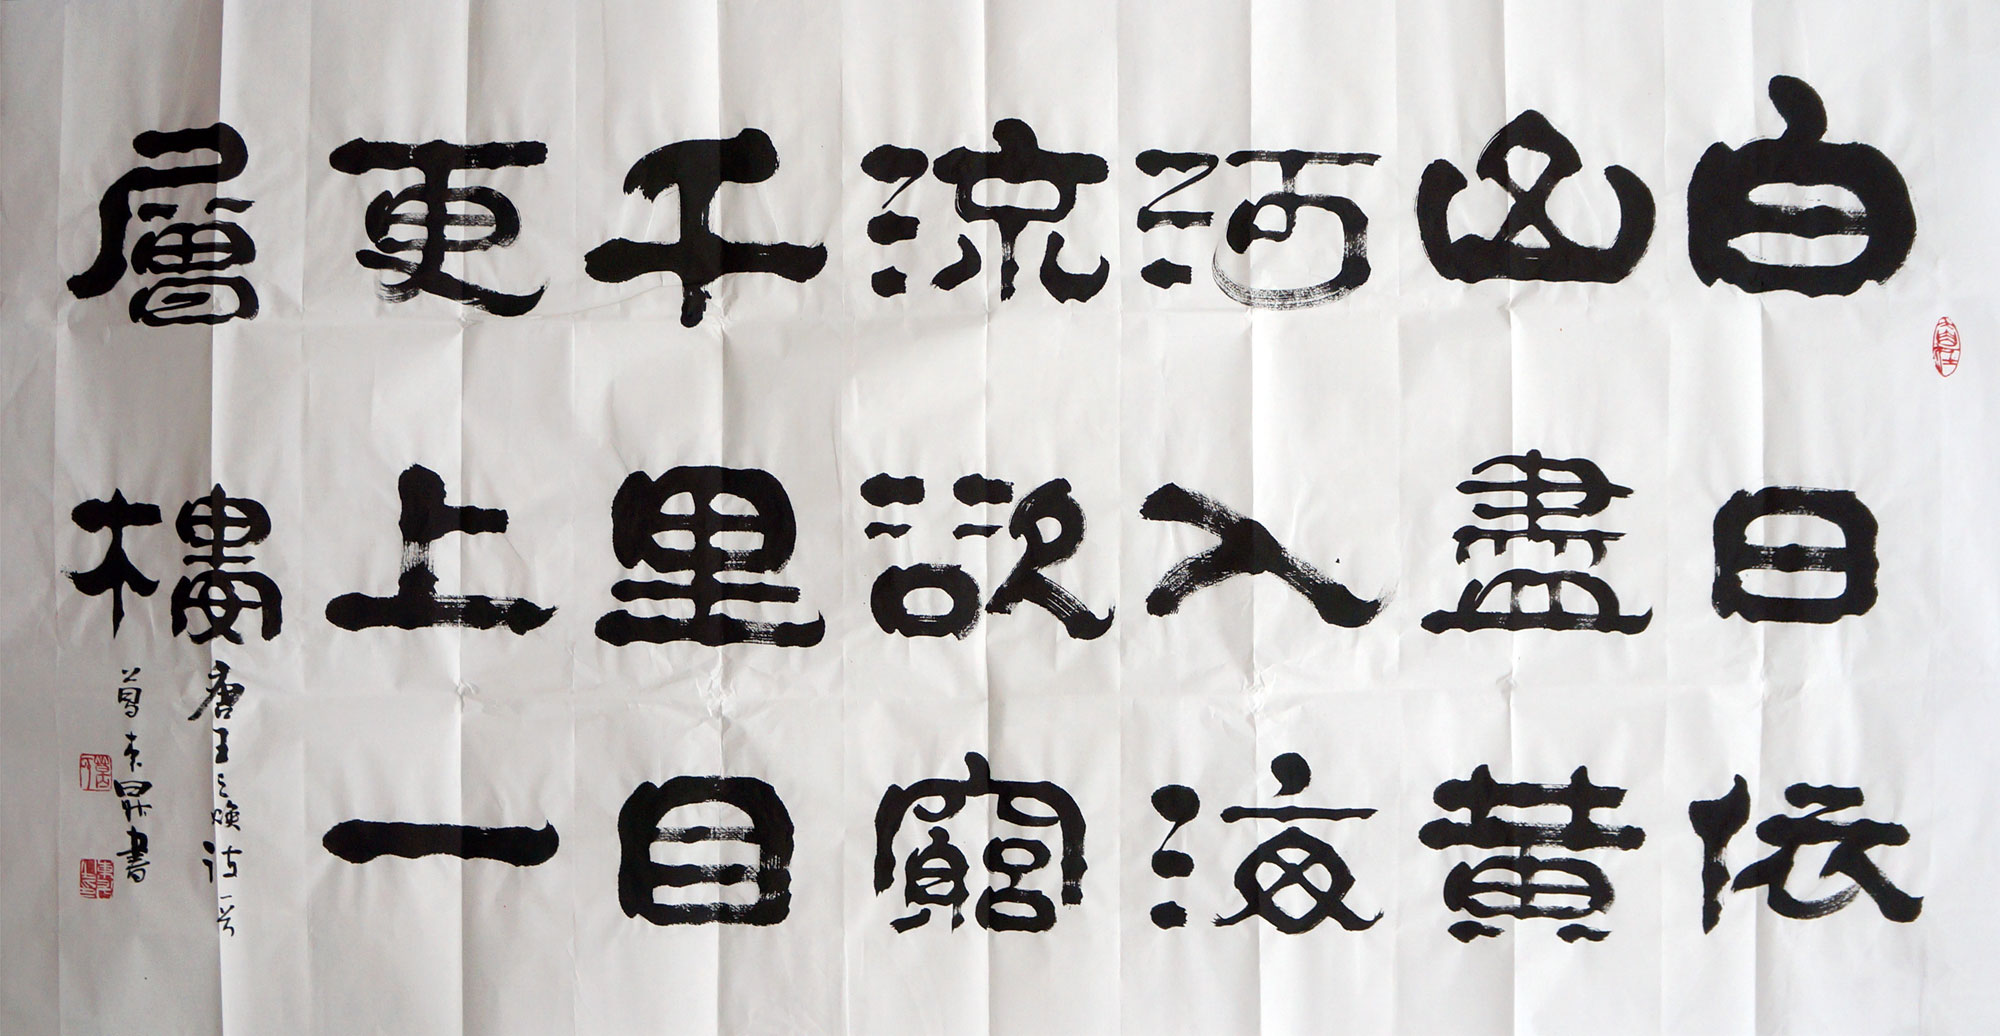 白日依
山盡黃
河入海
流欲窮
千里目
更上一
層樓
唐王之煥詩一首
葛東昇書